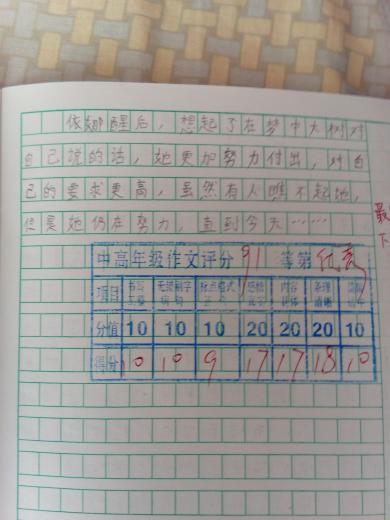 依娜醒后，想起了在梦中大树对
自己说的话，她更加努力付出，对自
己的要求更高，虽然有人瞧不起她，
但是她仍在努力，直到今天……
最
下
中高年级作文评分 91 等第 优秀
项目 书写 无错别字 标点格式 内容 条理
病句 清晰
分值 10 10 10 20 20 20 10
得分 10 10 9 17 17 18 10